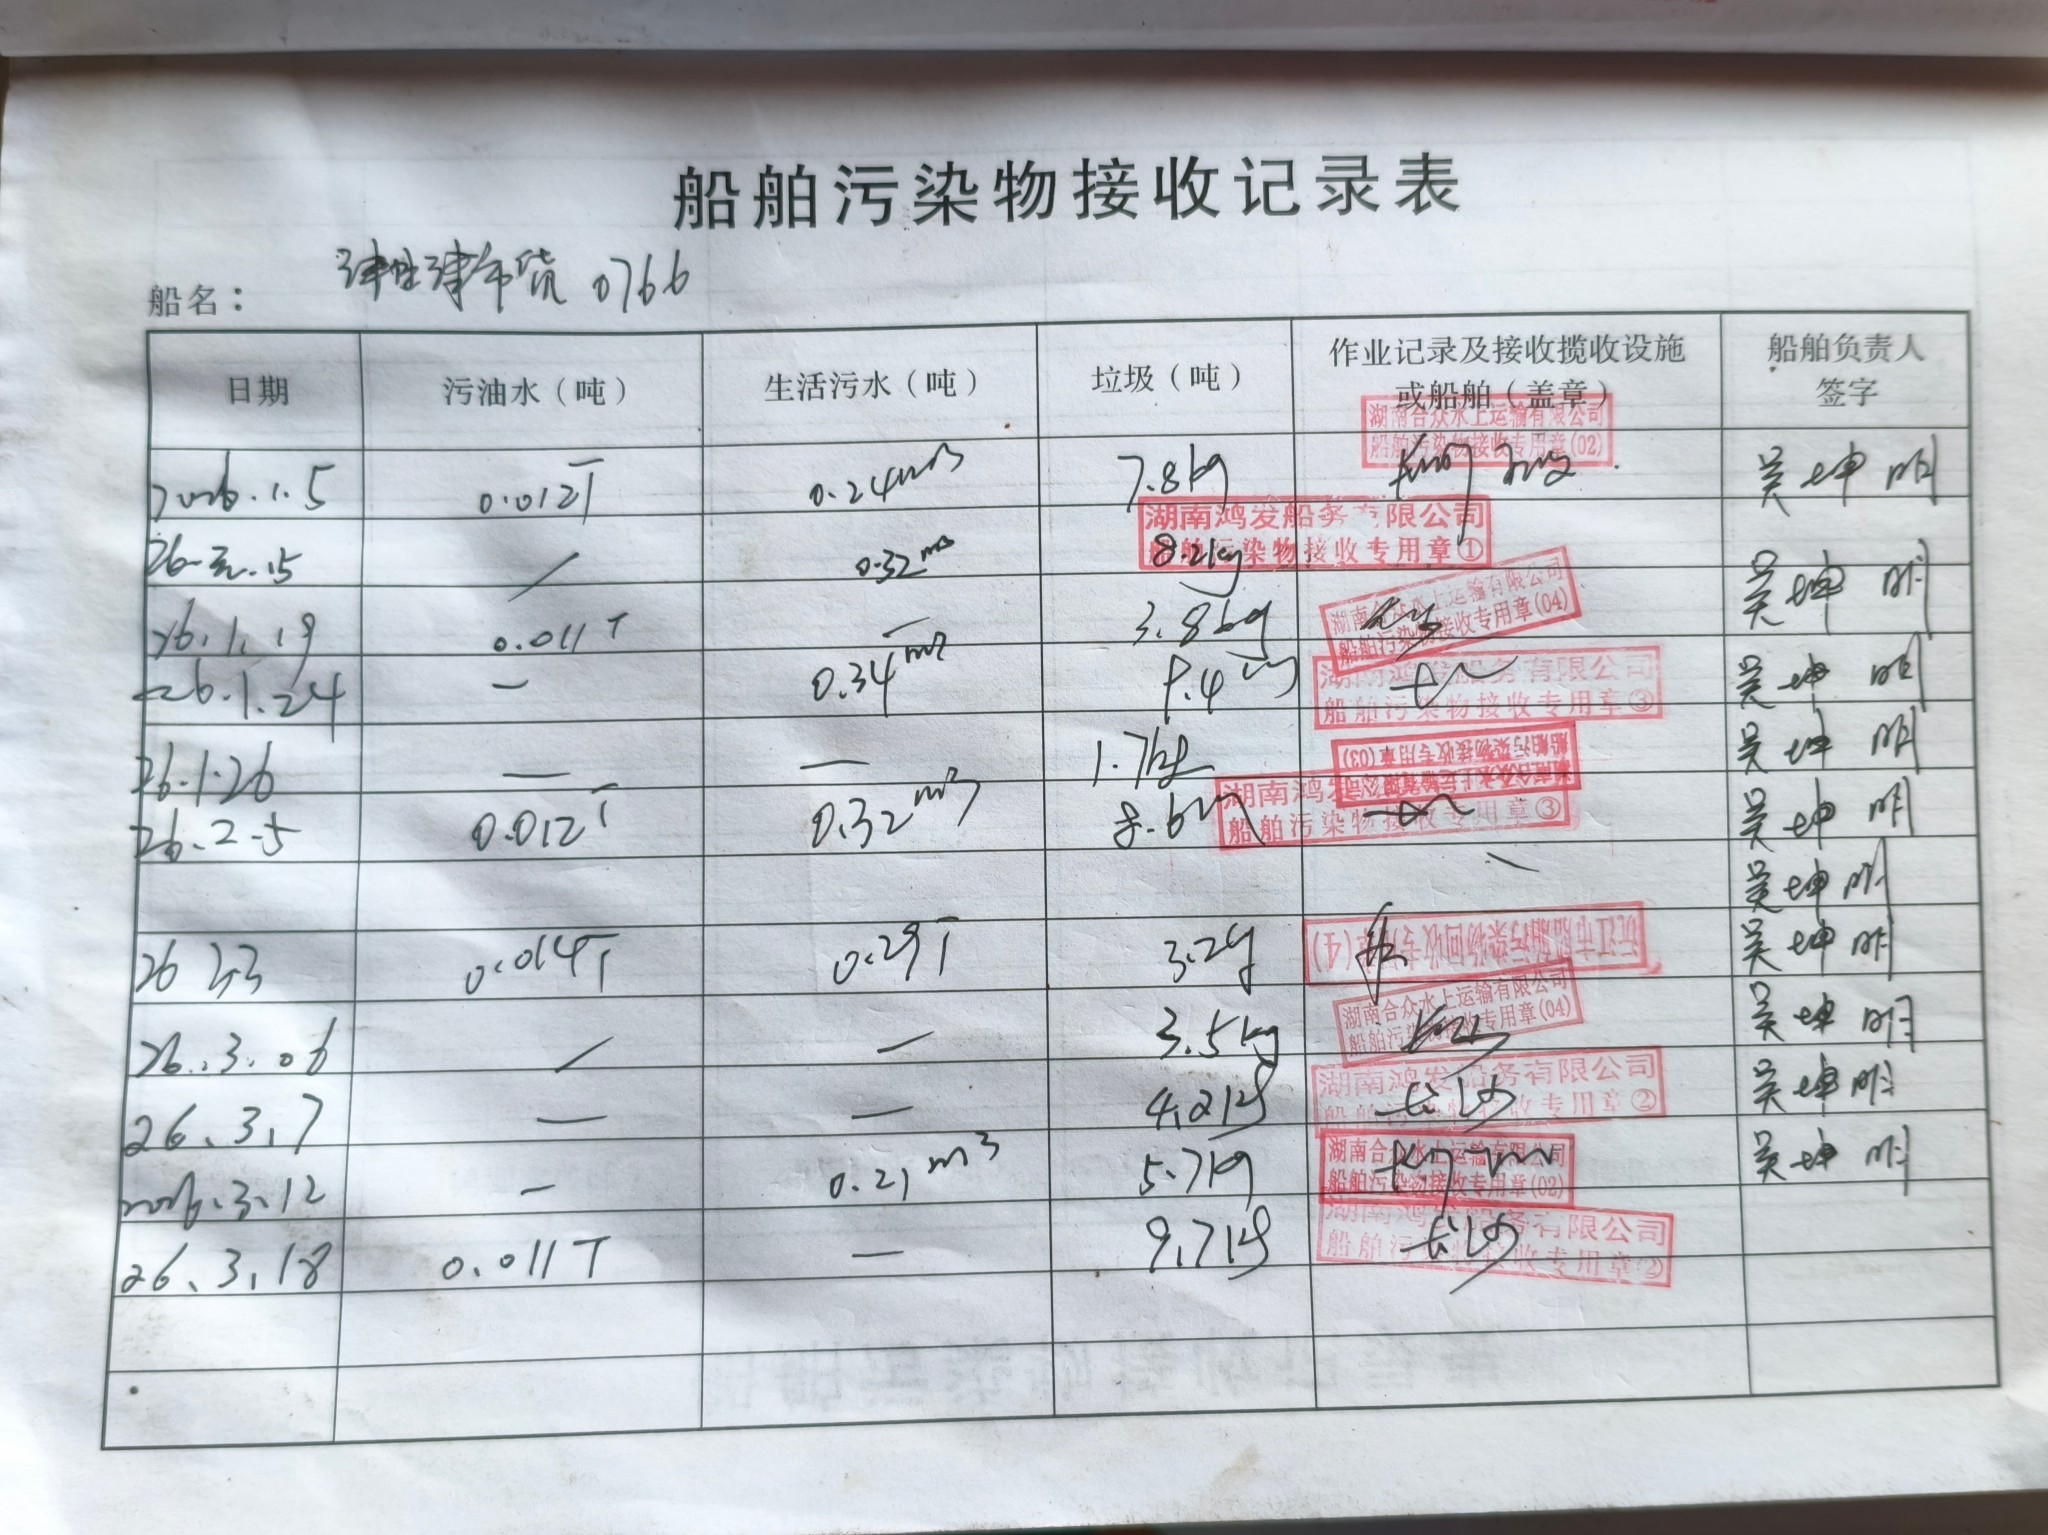 船舶污染物接收记录表
船名： 津市货 0766
日期 污油水（吨） 生活污水（吨） 垃圾（吨） 作业记录及接收揽收设施或船舶（盖章） 船舶负责人签字
湖南合众水上运输有限公司
船舶污染物接收专用章(02)
2026.1.5 0.012T 0.24m³ 7.8kg 吴坤明
湖南鸿发船务有限公司
船舶污染物接收专用章①
26.元.15 / 0.32m³ 8.2kg 吴坤明
湖南合众水上运输有限公司
船舶污染物接收专用章(04)
26.1.19 0.011T — 3.8kg 长沙
湖南鸿发船务有限公司
船舶污染物接收专用章③
26.1.24 — 0.34m³ 9.4 吴坤明
船舶污染物接收专用章(03)
湖南合众水上运输有限公司
26.1.26 — — 1.7kg 吴坤明
湖南鸿发船务有限公司
船舶污染物接收专用章③
26.2.5 0.012T 0.32m³ 8.6 吴坤明
吴坤明
沅江市船舶污染物回收专用章(4)
26 0.014T 0.29T 3.2g 吴坤明
湖南合众水上运输有限公司
船舶污染物接收专用章(04)
26.3.06 / — 3.5kg 长沙 吴坤明
湖南鸿发船务有限公司
船舶污染物接收专用章②
26.3.7 — — 4.2kg 长沙 吴坤明
湖南合众水上运输有限公司
船舶污染物接收专用章(02)
2026.3.12 — 0.21m³ 5.7kg 吴坤明
湖南鸿发船务有限公司
船舶污染物接收专用章②
26.3.18 0.011T — 9.7kg 长沙